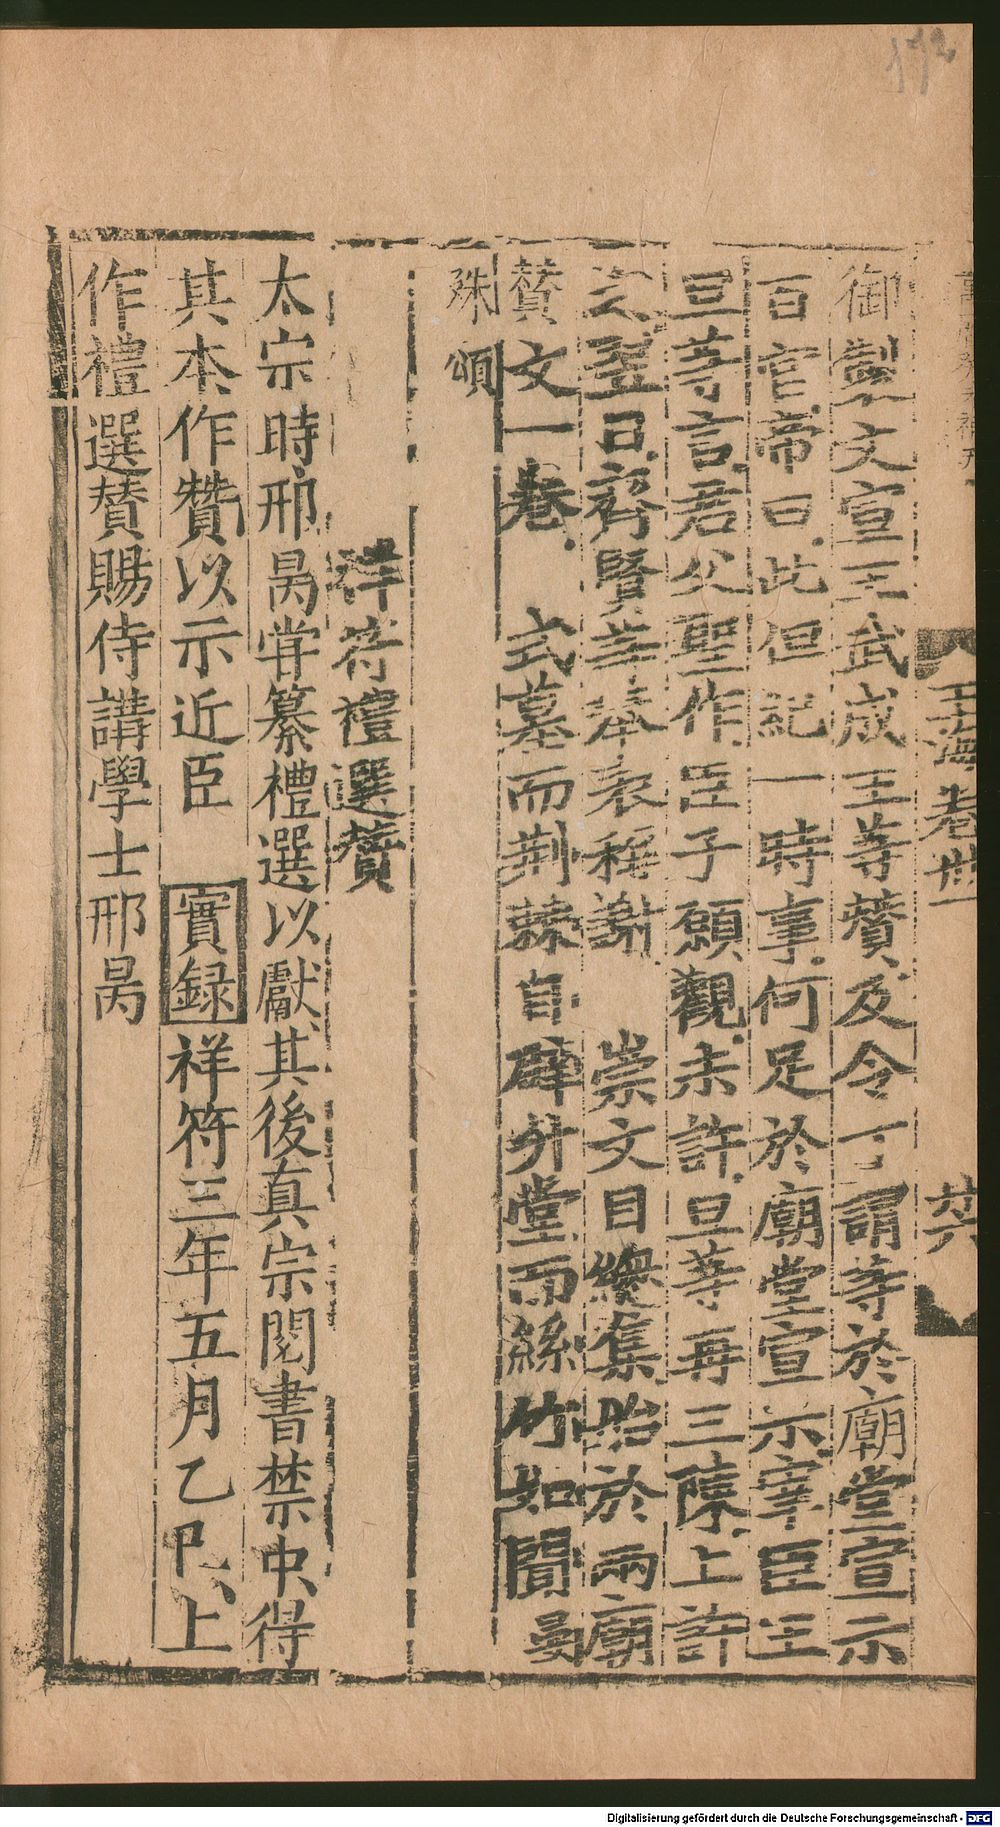 172
玉海卷卅一
廿六
御製文宣王武成王等贊及令丁謂等於廟堂宣示
百官帝曰此但記一時事何足於廟堂宣示宰臣王
旦等言君父聖作臣子願觀未許旦等再三陳上許
之翌日齊賢等奉表稱謝 崇文目總集詔於兩廟
贊文一卷 式墓而荊棘自辟升堂而絲竹如聞晏
殊頌
祥符禮選贊
太宗時邢昺嘗纂禮選以獻其後真宗閱書禁中得
其本作贊以示近臣 實録祥符三年五月乙巳上
作禮選贊賜侍講學士邢昺
Digitalisierung gefördert durch die Deutsche Forschungsgemeinschaft - DFG